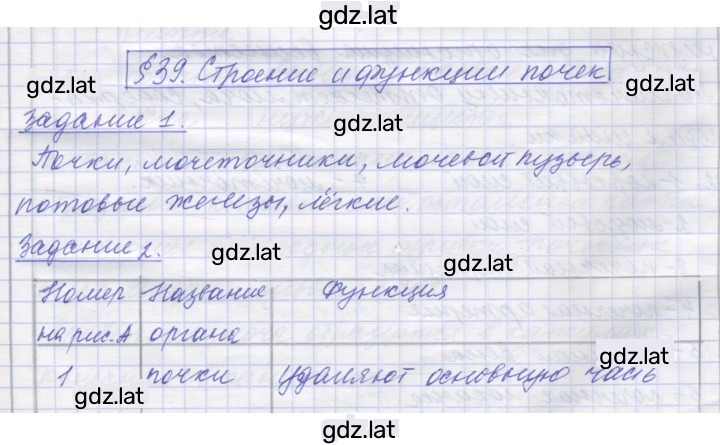 gdz.lat
§39. Строение и функции почек
gdz.lat gdz.lat
Задание 1. gdz.lat
Почки, мочеточники, мочевой пузырь,
потовые железы, лёгкие.
Задание 2. gdz.lat gdz.lat
Номер Название Функция
на рис. А органа
gdz.lat
1 почки Удаляют основную часть
gdz.lat
gdz.lat